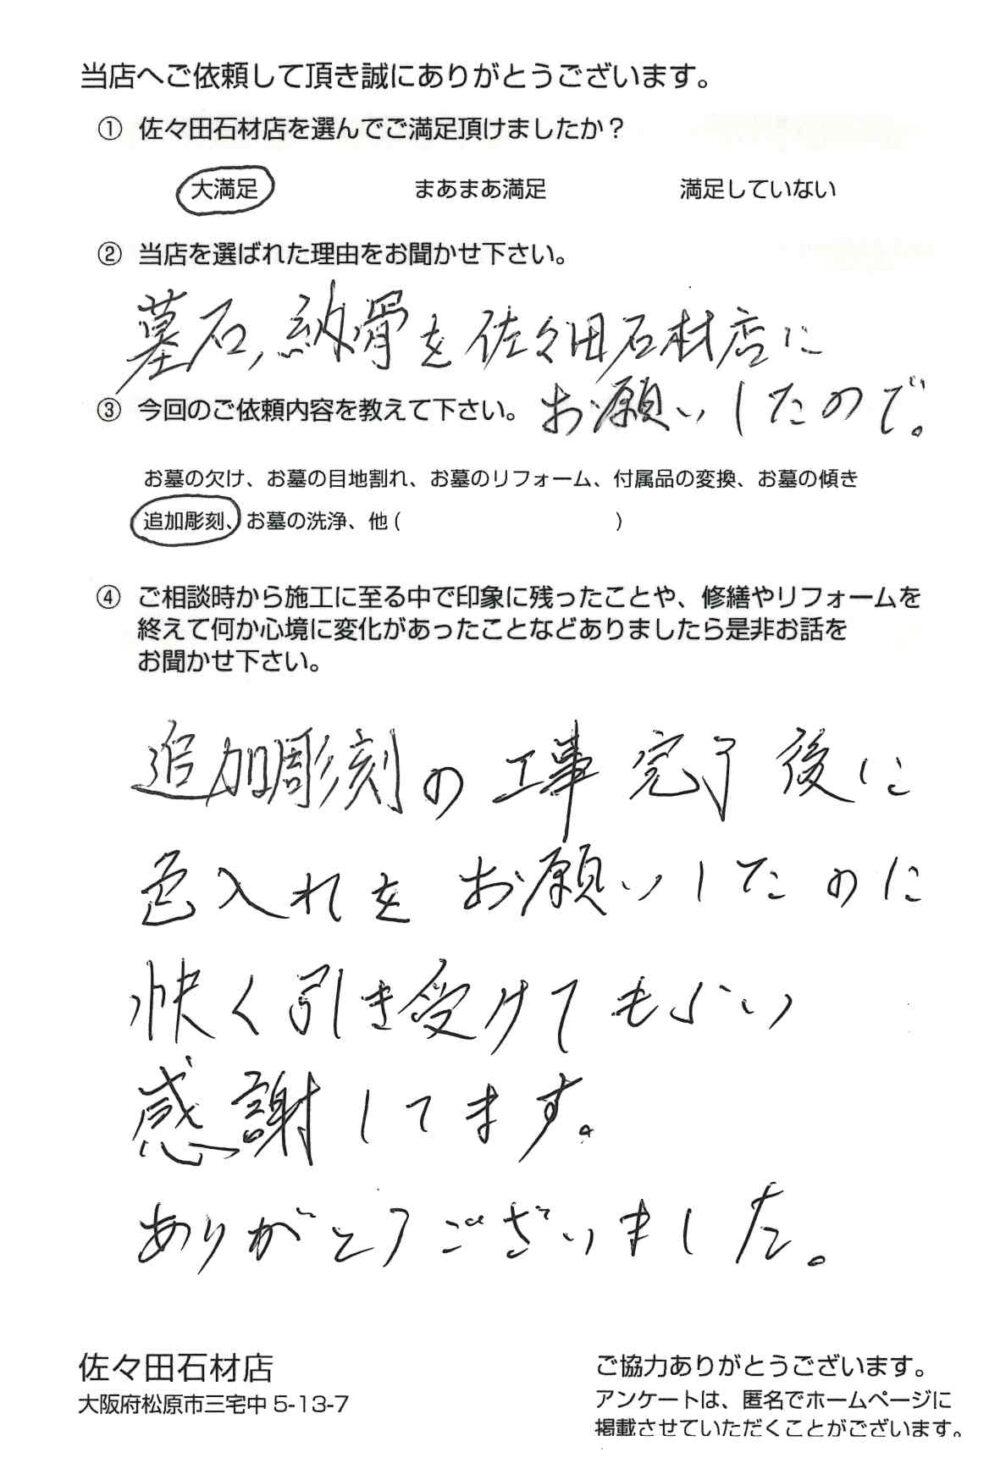 当店へご依頼して頂き誠にありがとうございます。
① 佐々田石材店を選んでご満足頂けましたか？
大満足 まあまあ満足 満足していない
② 当店を選ばれた理由をお聞かせ下さい。
墓石,納骨を佐々田石材店に
お願いしたので。
③ 今回のご依頼内容を教えて下さい。
お墓の欠け、お墓の目地割れ、お墓のリフォーム、付属品の変換、お墓の傾き
追加彫刻、お墓の洗浄、他 ( )
④ ご相談時から施工に至る中で印象に残ったことや、修繕やリフォームを
終えて何か心境に変化があったことなどありましたら是非お話を
お聞かせ下さい。
追加彫刻の工事完了後に
色入れをお願いしたのに
快く引き受けてもらい
感謝してます。
ありがとうございました。
佐々田石材店
大阪府松原市三宅中 5-13-7
ご協力ありがとうございます。
アンケートは、匿名でホームページに
掲載させていただくことがございます。